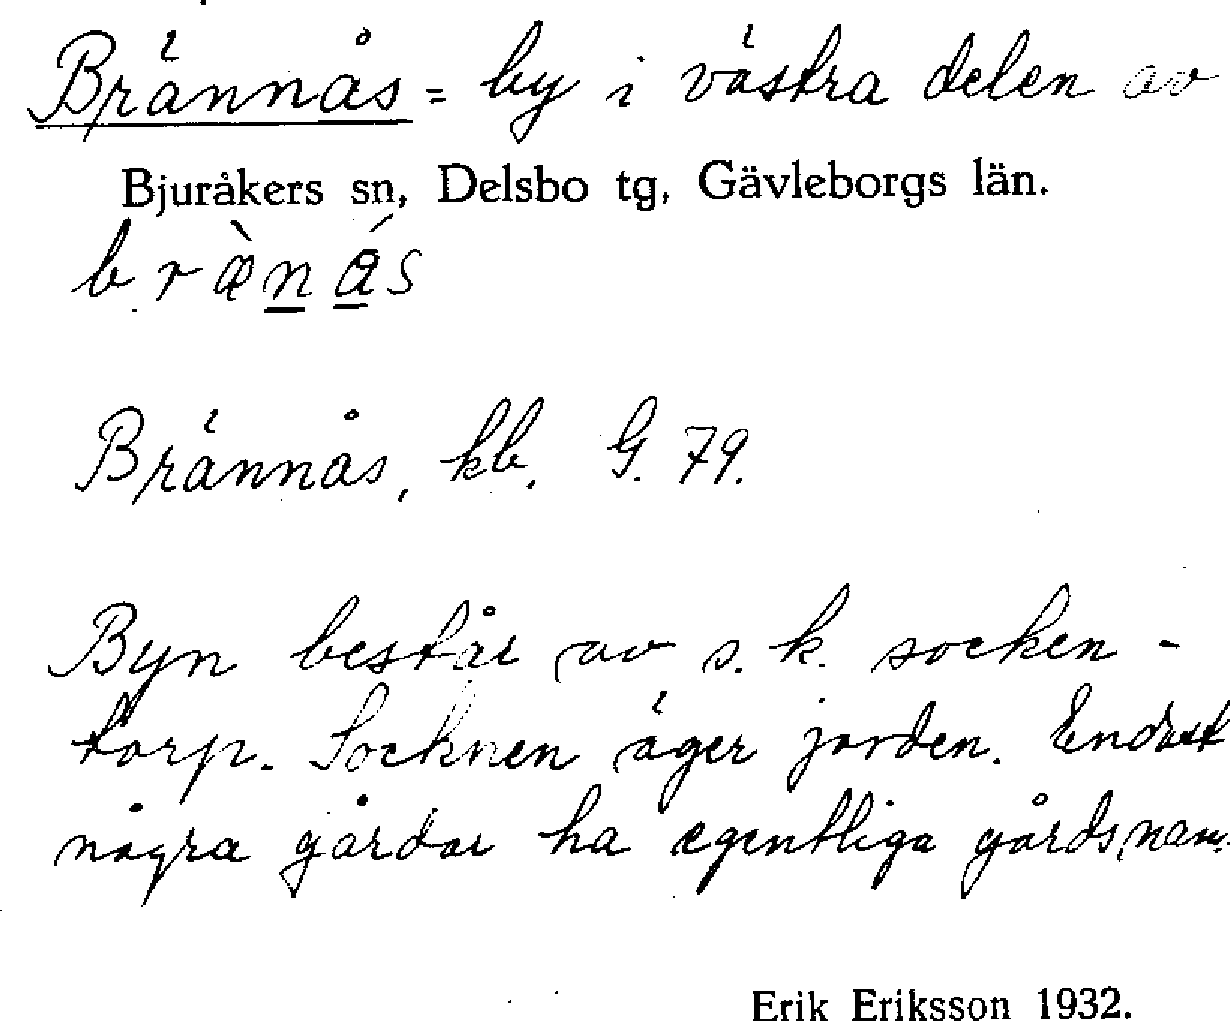 Brännås = by i västra delen av
Bjuråkers sn, Delsbo tg, Gävleborgs län.
bræ̀nåś
Brännås, kb. G. 79.
Byn består av s. k. socken-
torp. Socknen äger jorden. Endast
några gårdar ha egentliga gårdsnam.
Erik Eriksson 1932.